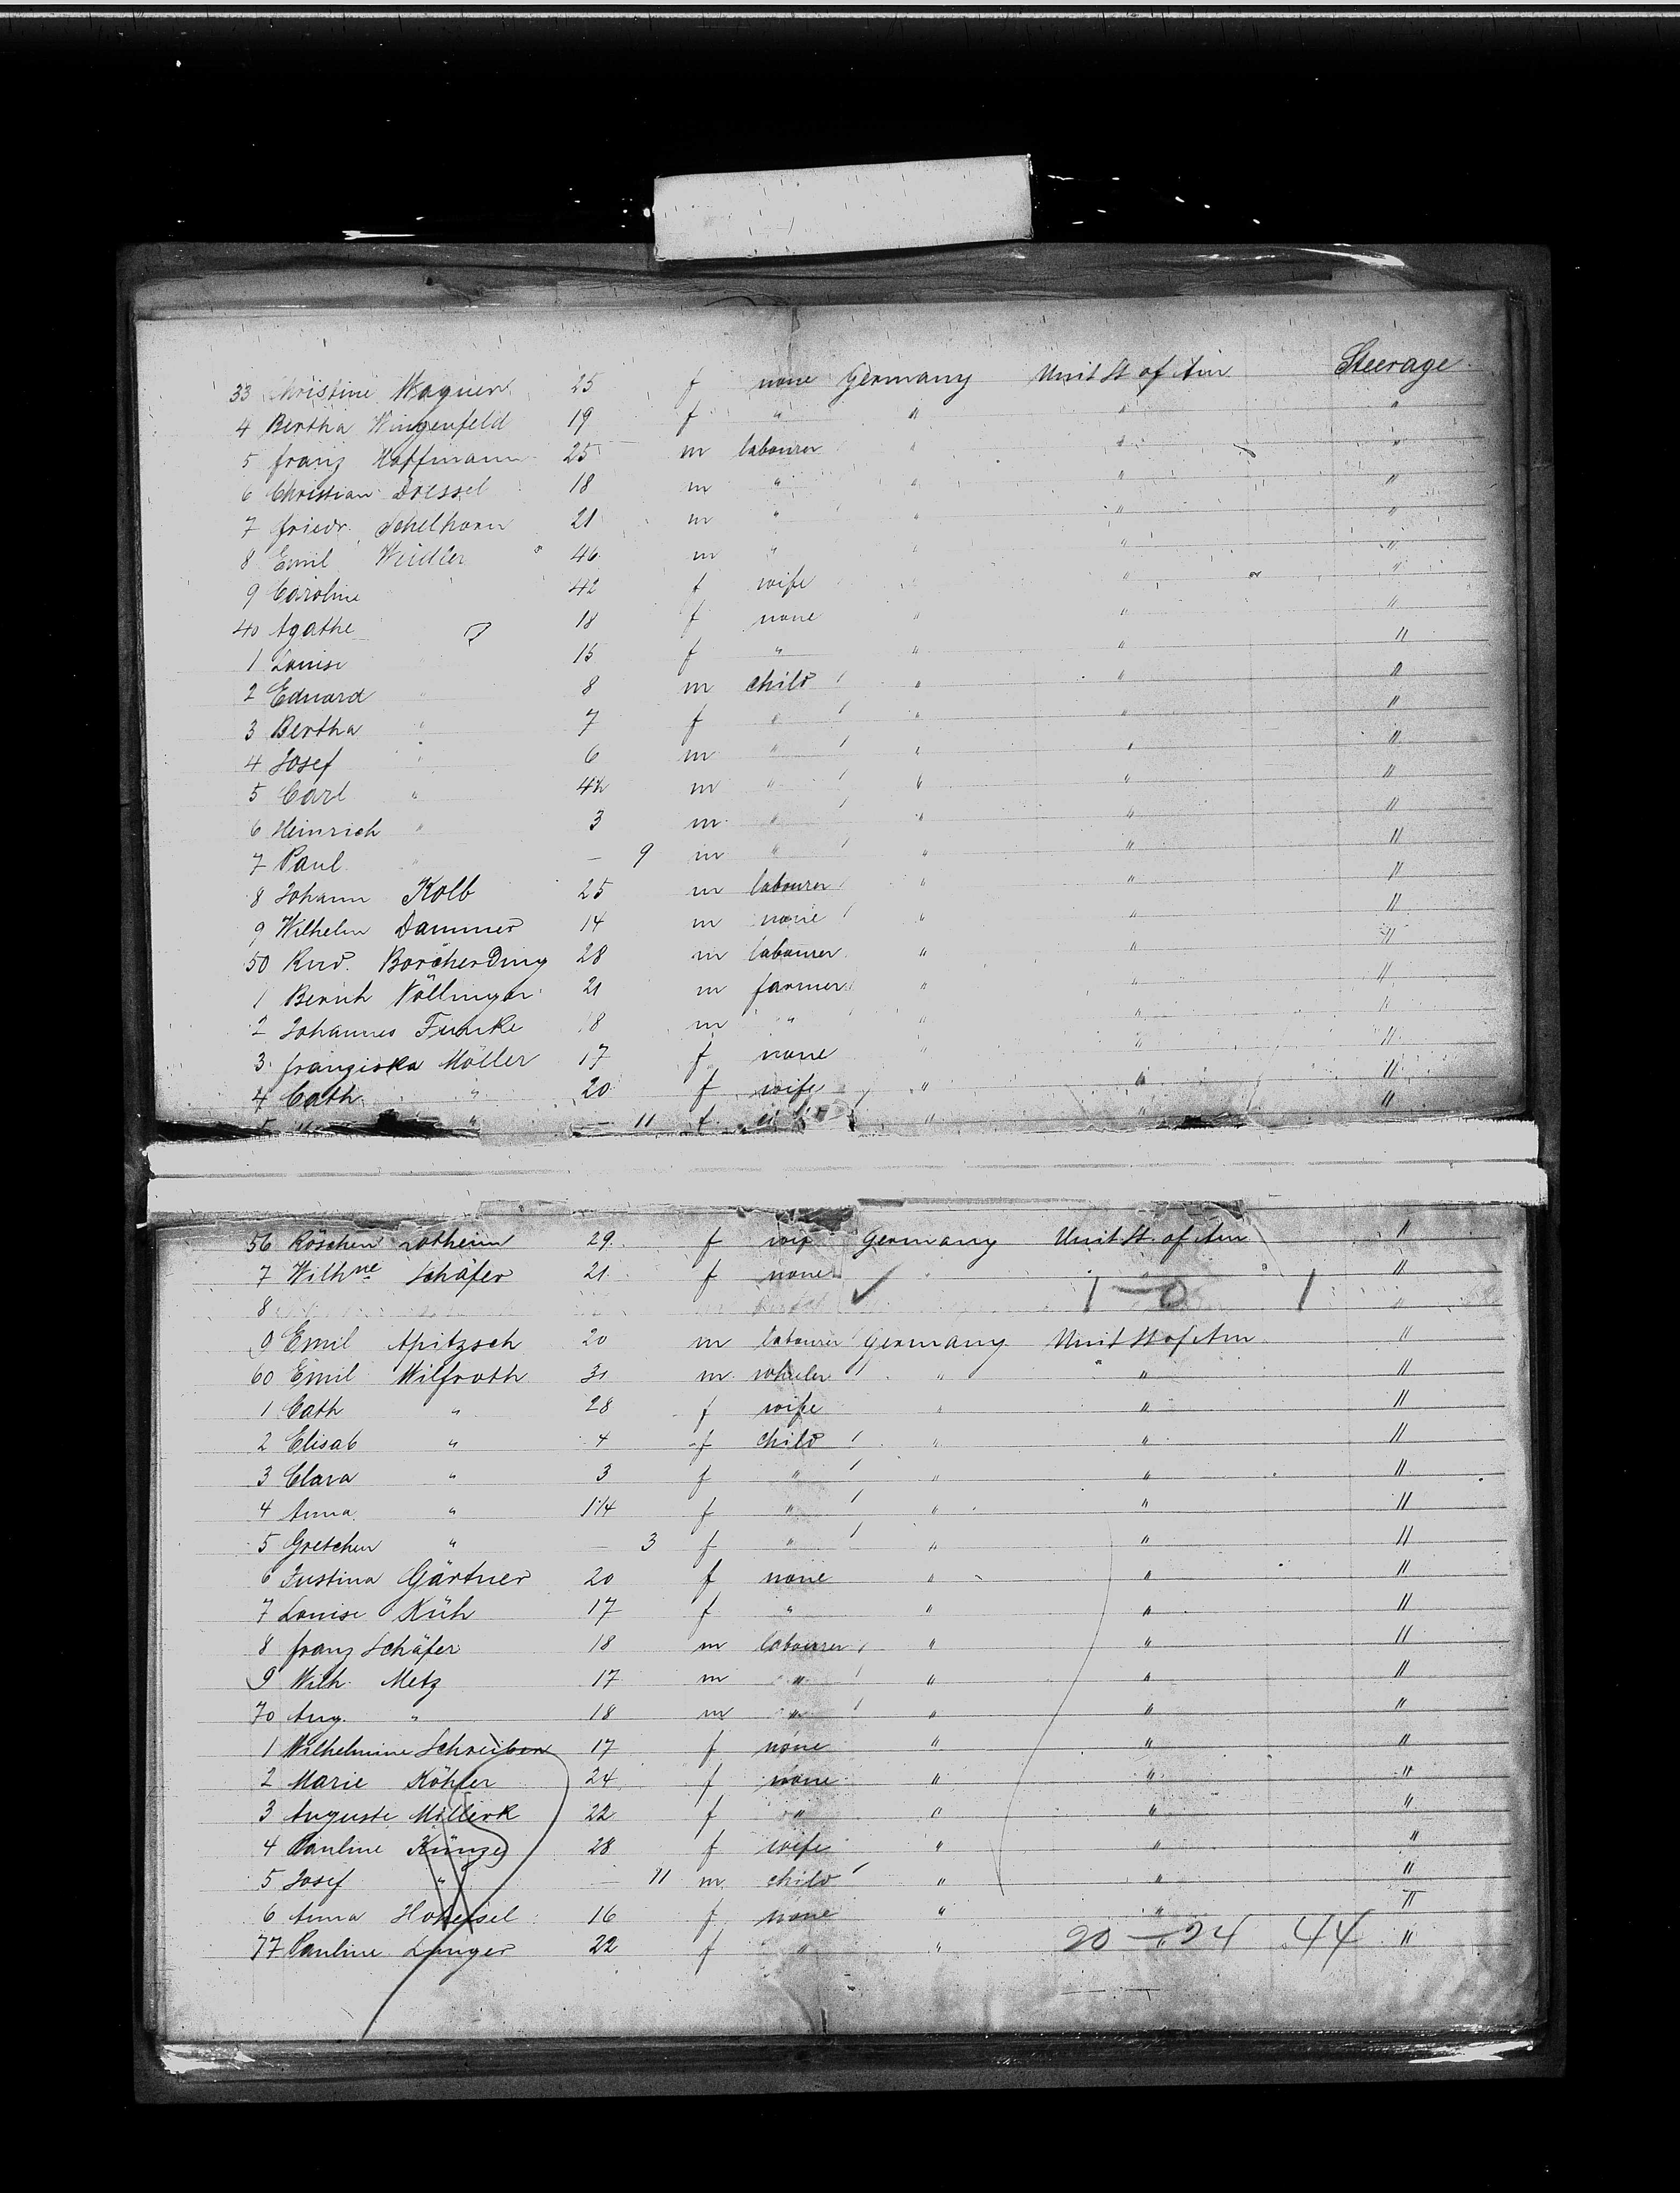 33 Christine Wagner 25 f none Germany Unit St of Am Steerage
4 Bertha Wingenfeld 19 f " " " "
5 franz Hoffmann 25 m labourer " " "
6 Christian Dressel 18 m " " " "
7 friedr. Schelhorn 21 m " " " "
8 Emil Weidler 46 m " " " "
9 Caroline 42 f wife " " "
40 Agathe 18 f none " " "
1 Louise " 15 f " " " "
2 Eduard " 8 m child " " "
3 Bertha " 7 f " " " "
4 Josef " 6 m " " " "
5 Carl " m " " " "
6 Heinrich " 3 m " " " "
7 Paul " — 9 m " " " "
8 Johann Kolb 25 m labourer " " "
9 Wilhelm Dammer 14 m none " " "
50 Rud. Borcherding 28 m labourer " " "
1 Völlinger 21 m farmer " " "
2 Johannes Funke 18 m " " " "
3 franziska Möller 17 f none " " "
4 Cath. " 20 f wife " " "
5 " — 11 f " " "
56 Röschen Lotheim 29 f Germany Unit. St. of Am "
7 Wilhne Schäfer 21 f none " "
8 1 — 0 1 "
9 Emil Apitzsch 20 m labourer Germany Unit St of Am "
60 Emil Wilfroth 31 m " " "
1 Cath " 28 f wife " " "
2 Elisab " 4 f child " " "
3 Clara " 3 f " " " "
4 Anna " 1 1/4 f " " " "
5 Gretchen " — 3 f " " " "
6 Justina Gärtner 20 f none " " "
7 Louise Küh 17 f " " " "
8 franz Schäfer 18 m labourer " " "
9 Wilh. Metz 17 m " " " "
70 Aug. " 18 m " " " "
1 Wilhelmine Schreiber 17 f none " " "
2 Marie Köhler 24 f none " " "
3 Auguste Millerk 22 f " " " "
4 Pauline Künzel 28 f wife " " "
5 Josef " — 11 m child " " "
6 Anna Hoheisel 16 f none " " "
77 Pauline Langer 22 f " " " 20 — 24 44 "